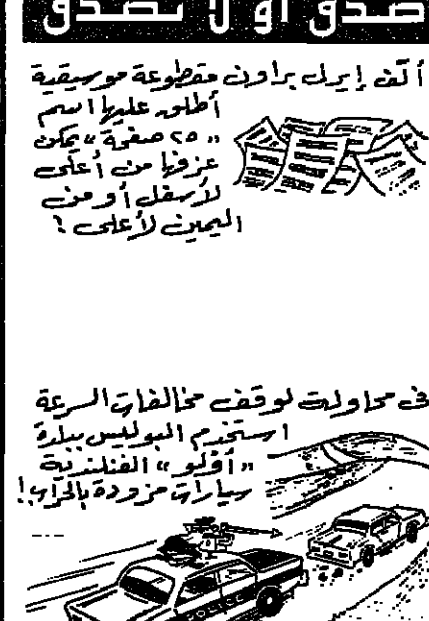 صدق أو لا تصدق
ألّف إيرل براون مقطوعة موسيقية
أطلق عليها اسم
"٢٥ صفحة" يمكن
عزفها من أعلى
لأسفل أو من
اليمين لأعلى !
فى محاولة لوقف مخالفات السرعة
استخدم البوليس ببلدة
"أوليو" الفنلندية
سيارات مزودة بالحراب!
POLICE